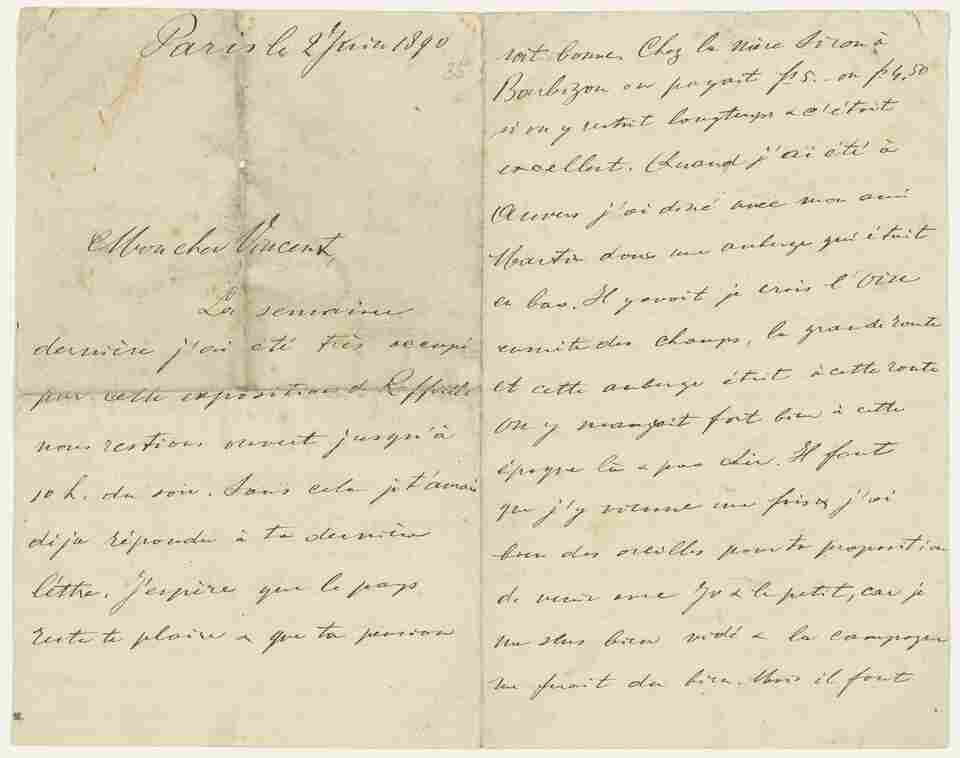 Paris le 2 Juin 1890
35
Mon cher Vincent,
La semaine
dernière j'ai été très occupé
par cette exposition de Raffaelli
nous restions ouvert jusqu'à
10 h. du soir. Sans cela je t'aurais
dija répondu à ta dernière
léttre. J'espère que le pays
reste te plaire & que ta pension
soit bonne. Chez la mère Siron à
Barbizon on payait f 5.- ou f 4,50
si on y restait longtemps & c'était
excellent. Quand j'ai été à
Auvers j'ai diné avec mon ami
Martin dans une auberge qui était
en bas. Il y avait je crois l'Oise
ensuite des champs, la grande route
et cette auberge était à cette route
On y mangeait fort bien à cette
époque là & pas cher. Il faut
que j'y vienne une fois & j'ai
bien des oreilles pour ta proposition
de venir avec Jo & le petit, car je
me sens bien vidé & la campagne
me ferait du bien. Mais il faut